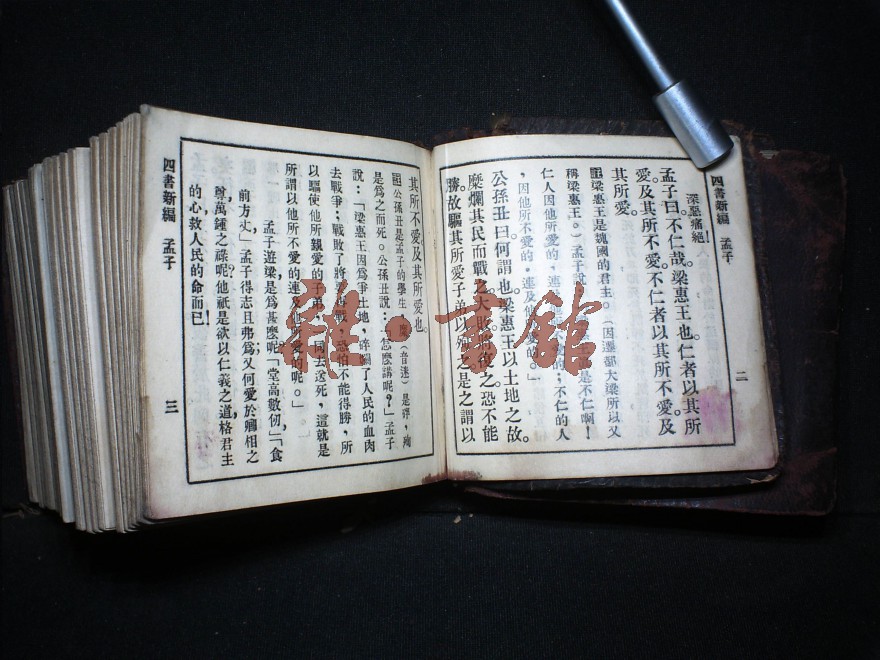 四書新編　孟子
二
深惡痛絕！
孟子曰。不仁哉。梁惠王也。仁者以其所
愛及其所不愛。不仁者以其所不愛及
其所愛。
梁惠王是魏國的君主。（因遷都大梁所以又
稱梁惠王。）孟子是不仁啊！
仁人因他所愛的，連的；不仁的人
，因他所不愛的，連及他愛的。」
公孫丑曰。何謂也。梁惠王以土地之故。
糜爛其民而戰之。大敗。將復之。恐不能
勝。故驅其所愛子弟以殉之。是之謂以
其所不愛。及其所愛也。
公孫丑是孟子的學生　糜（音迷）是碎，殉
是為之而死。公孫丑說：「怎麼講呢？」孟子
說：「梁惠王因為爭土地，碎爛了人民的血肉
去戰爭；戰敗了將要再戰，恐怕不能得勝，所
以驅使他所親愛的子弟，同去送死，這就是
所謂以他所不愛的連及他所愛的呢。」
孟子遊梁是為甚麼呢「堂高數仞」「食
前方丈」孟子得志且弗為又何愛於卿相之
尊萬鍾之祿呢？他祇是欲以仁義之道格君主
的心救人民的命而已！
四書新編　孟子
三
雅·書館